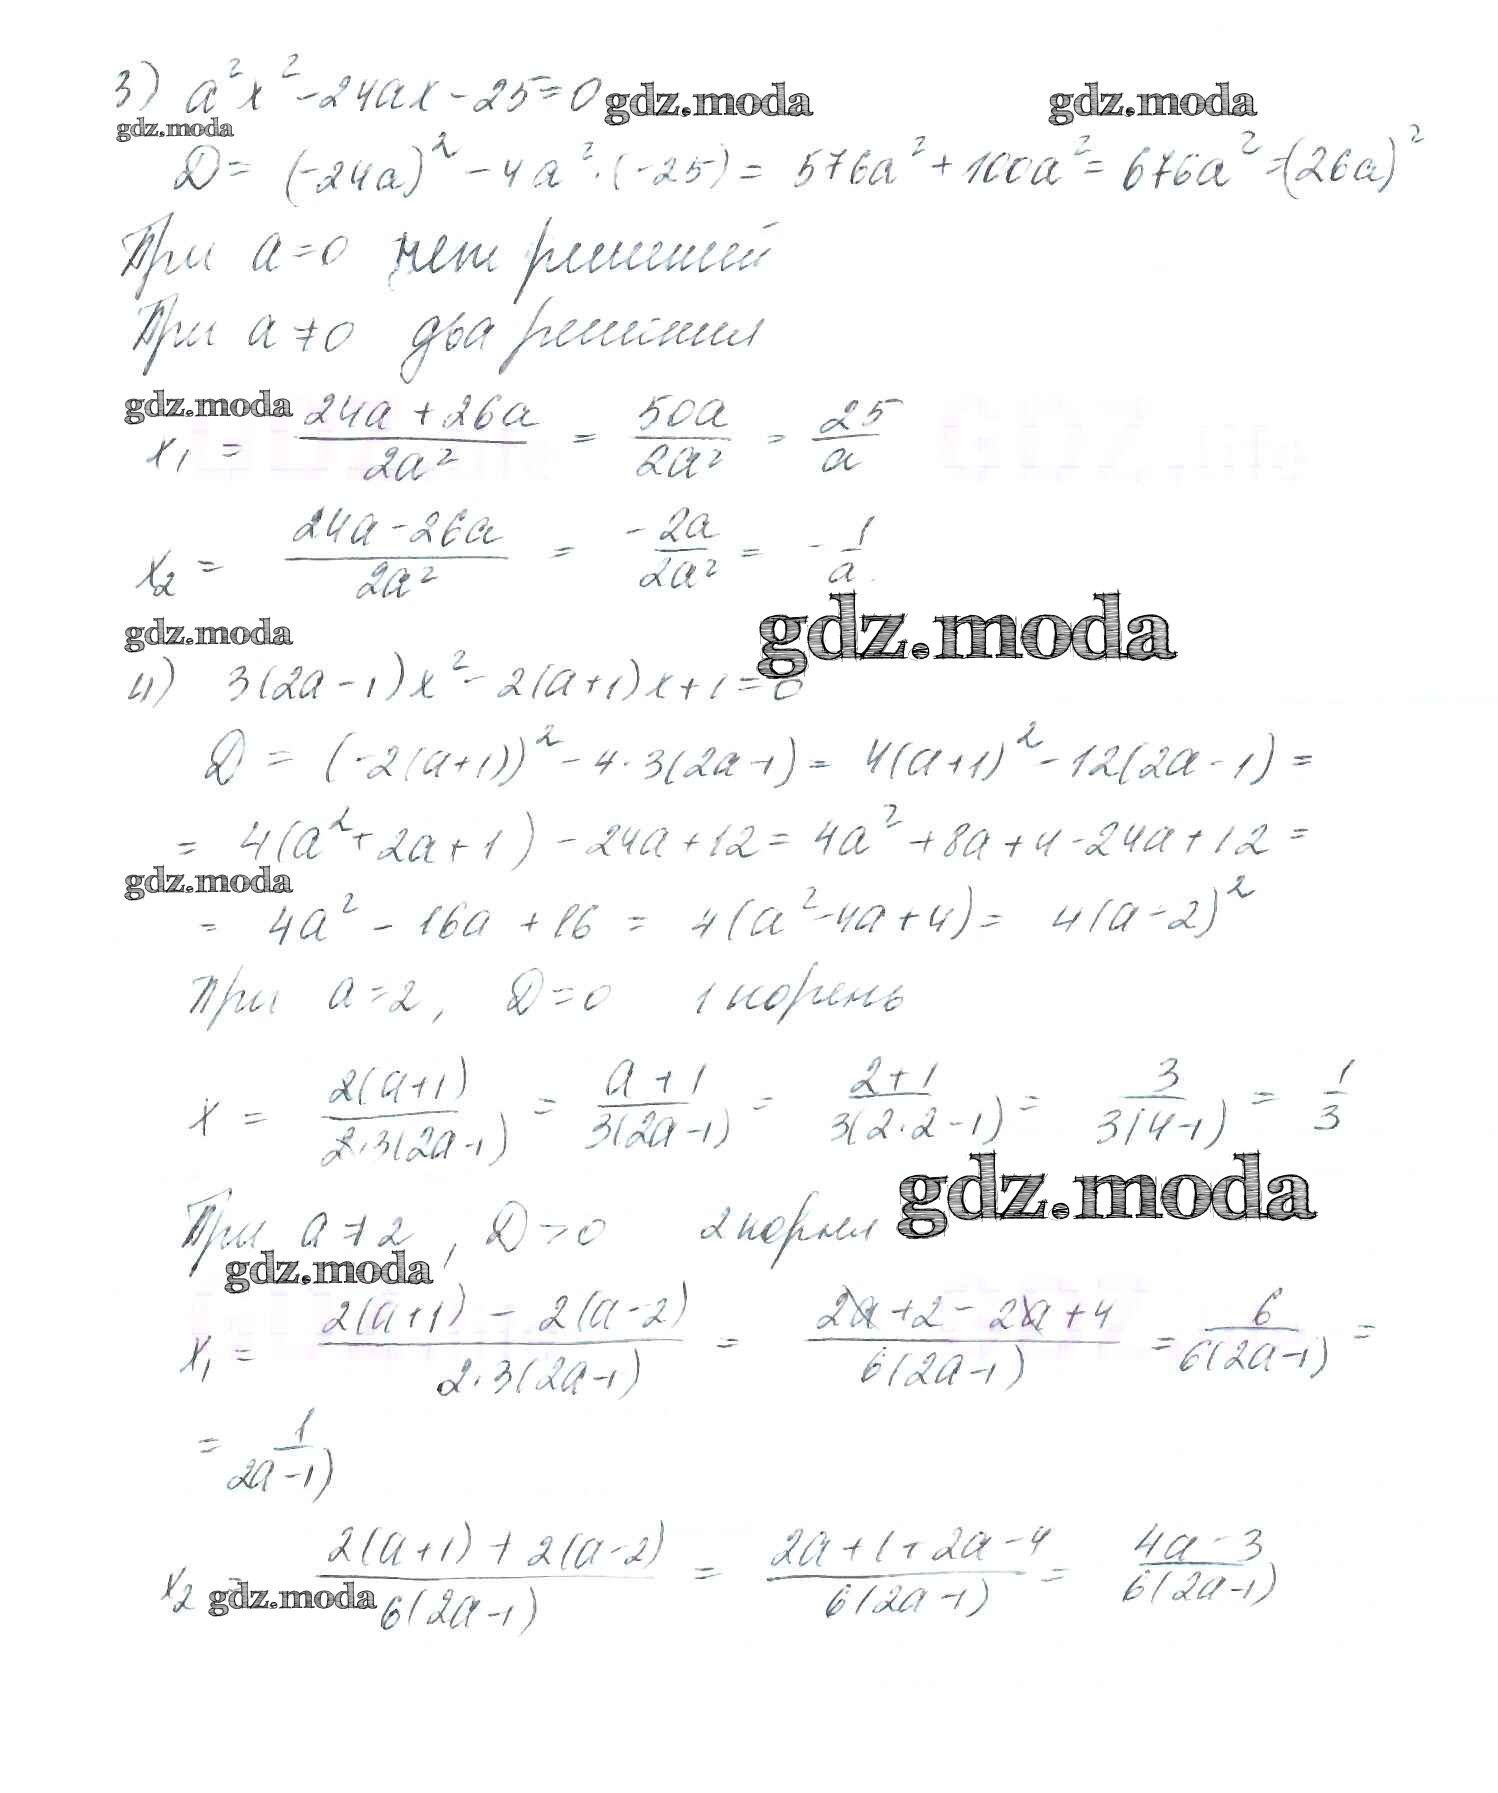 3) a²x² - 24ax - 25 = 0 gdz.moda gdz.moda
gdz.moda
D = (-24a)² - 4a²·(-25) = 576a² + 100a² = 676a² = (26a)²
При a = 0 нет решений
При a ≠ 0 два решения
gdz.moda
x₁ = (24a + 26a)/(2a²) = 50a/(2a²) = 25/a
x₂ = (24a - 26a)/(2a²) = -2a/(2a²) = -1/a
gdz.moda gdz.moda
4) 3(2a - 1)x² - 2(a+1)x + 1 = 0
D = (-2(a+1))² - 4·3(2a-1) = 4(a+1)² - 12(2a-1) =
= 4(a² + 2a + 1) - 24a + 12 = 4a² + 8a + 4 - 24a + 12 =
gdz.moda
= 4a² - 16a + 16 = 4(a² - 4a + 4) = 4(a-2)²
При a = 2, D = 0 1 корень
x = 2(a+1)/(2·3(2a-1)) = (a+1)/(3(2a-1)) = (2+1)/(3(2·2-1)) = 3/(3(4-1)) = 1/3
gdz.moda
При a ≠ 2, D > 0 2 корня
gdz.moda
x₁ = (2(a+1) - 2(a-2))/(2·3(2a-1)) = (2a + 2 - 2a + 4)/(6(2a-1)) = 6/(6(2a-1)) =
= 1/(2a-1)
x₂ = (2(a+1) + 2(a-2))/(6(2a-1)) = (2a + 1 + 2a - 4)/(6(2a-1)) = (4a - 3)/(6(2a-1))
gdz.moda